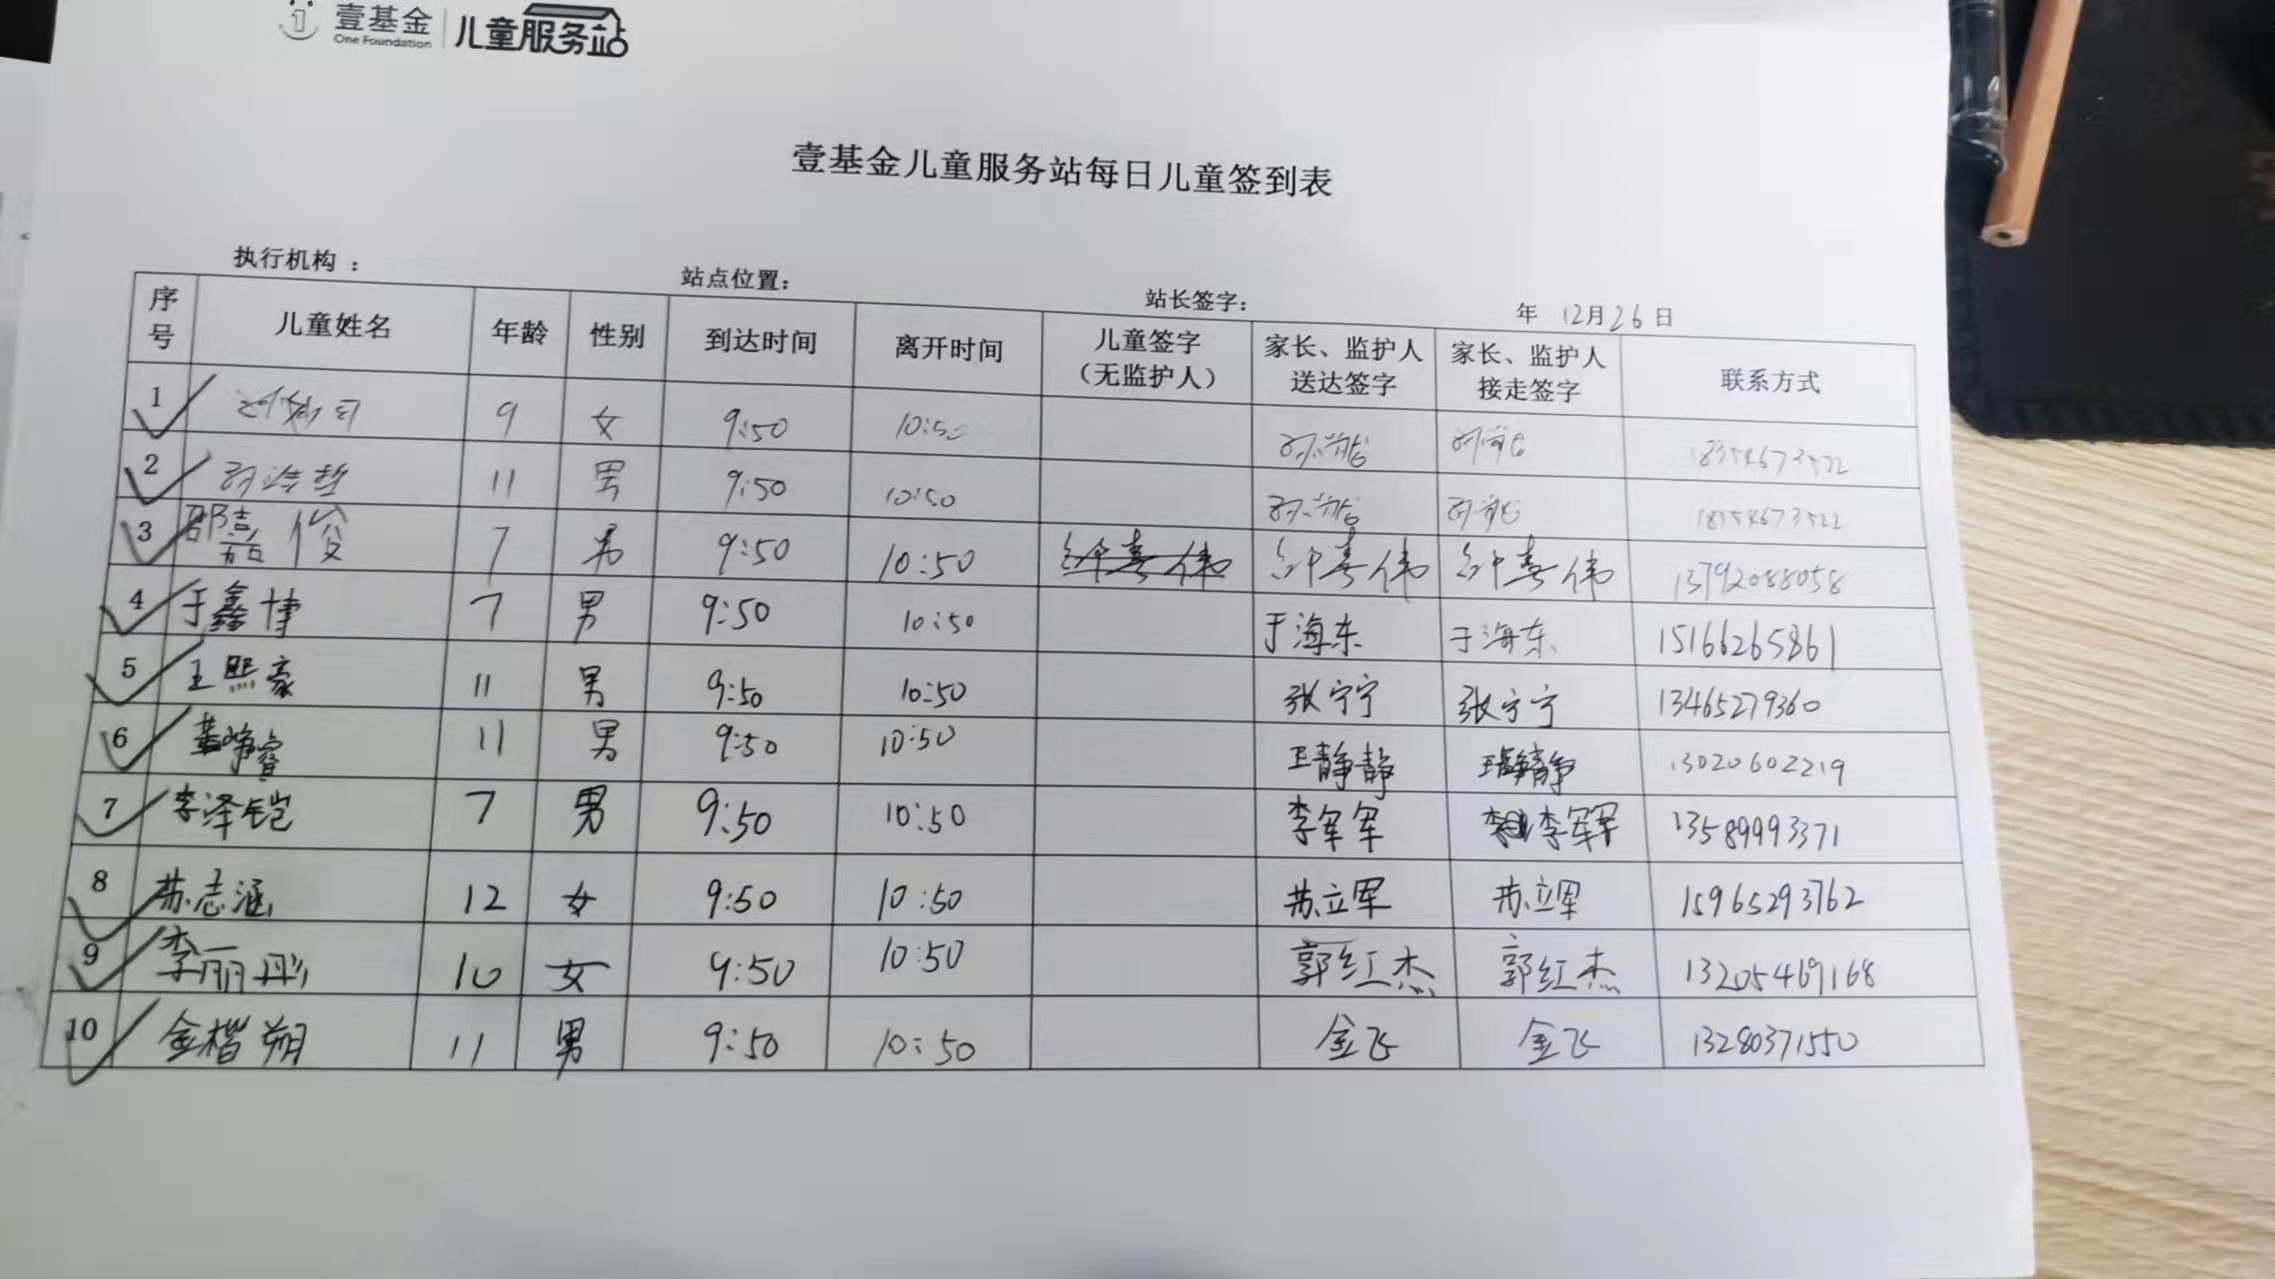 壹基金 儿童服务站
One Foundation
壹基金儿童服务站每日儿童签到表
执行机构： 站点位置： 站长签字： 年 12月26日
序号 儿童姓名 年龄 性别 到达时间 离开时间 儿童签字（无监护人） 家长、监护人送达签字 家长、监护人接走签字 联系方式
1 9 女 9:50 10:50
2 11 男 9:50 10:50
3 7 男 9:50 10:50 13792088058
4 于鑫博 7 男 9:50 10:50 于海东 于海东 15166265861
5 王熙豪 11 男 9:50 10:50 张宁宁 张宁宁 13465279360
6 11 男 9:50 10:50 王静静 13020602219
7 李泽铠 7 男 9:50 10:50 李军军 李军军 13589993371
8 苏志涵 12 女 9:50 10:50 苏立军 苏立军 15965293762
9 李丽彤 10 女 9:50 10:50 郭红杰 郭红杰 13205469168
10 金楷朔 11 男 9:50 10:50 金飞 金飞 13280371550